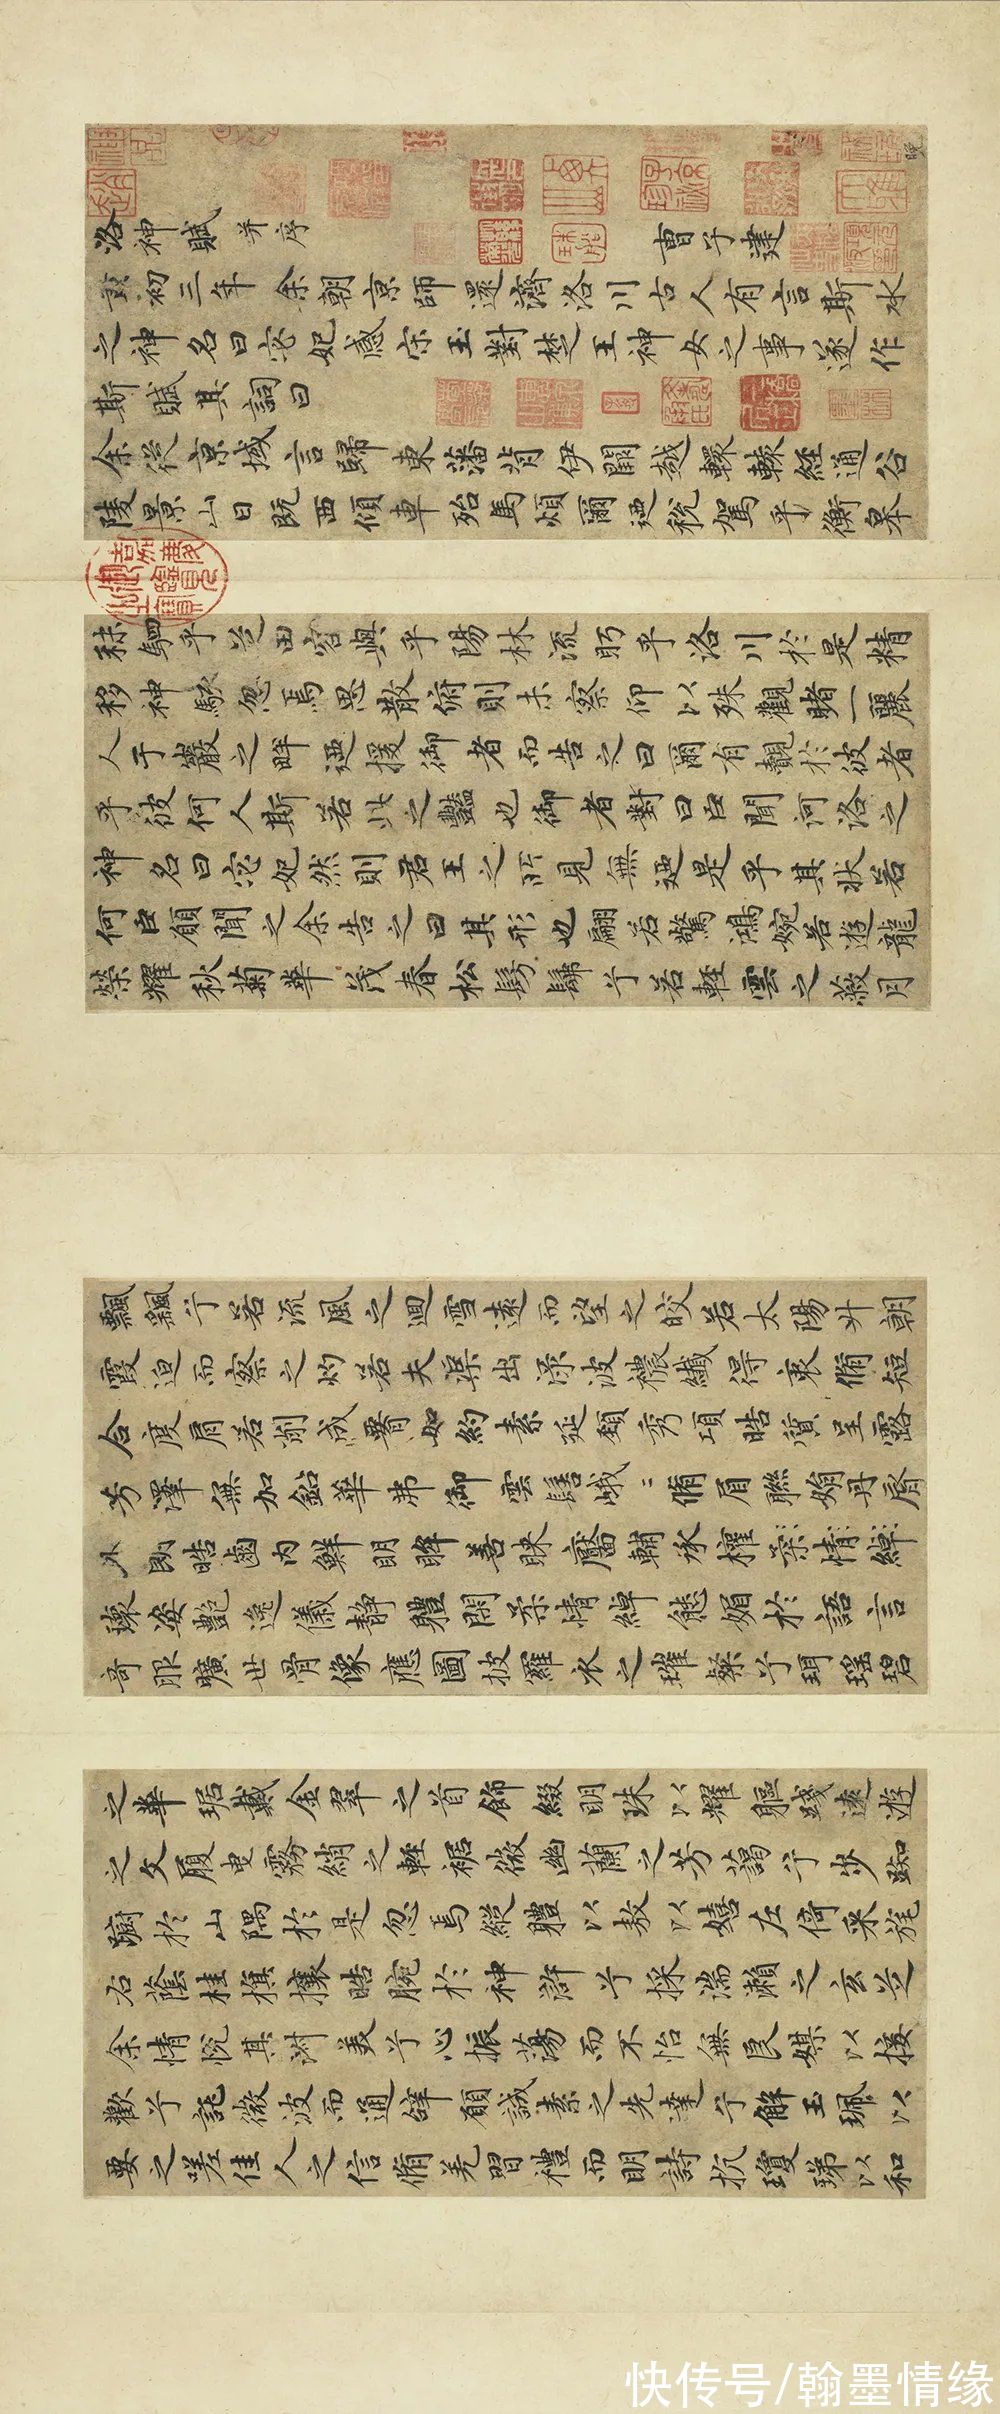 洛神賦 并序 曹子建
黃初三年余朝京師還濟洛川古人有言斯水
之神名曰宓妃感宋玉對楚王神女之事遂作
斯賦其詞曰
余從京域言歸東藩背伊闕越轘轅經通谷
陵景山日既西傾車殆馬煩爾迺稅駕乎衡皋
秣駟乎芝田容與乎陽林流眄乎洛川於是精
移神駭忽焉思散俯則未察仰以殊觀睹一麗
人于巖之畔迺援御者而告之曰爾有覿於彼者
乎彼何人斯若此之豔也御者對曰臣聞河洛之
神名曰宓妃然則君王之所見無迺是乎其狀若
何臣願聞之余告之曰其形也翩若驚鴻婉若遊龍
榮耀秋菊華茂春松髣髴兮若輕雲之蔽月
飄颻兮若流風之迴雪遠而望之皎若太陽升朝
霞迫而察之灼若夫渠出淥波穠纖得衷脩短
合度肩若削成腰如約素延頸秀項皓質呈露
芳澤無加鉛華弗御雲髻峨〻脩眉聯娟丹脣
外朗皓齒內鮮明眸善睞靨輔承權柔情綽
瓌姿艷逸儀靜體閑柔情綽態媚於語言
奇服曠世骨像應圖披羅衣之璀粲兮珥瑤碧
之華琚戴金翠之首飾綴明珠以耀軀踐遠遊
之文履曳霧綃之輕裾微幽蘭之芳藹兮步踟
躕於山隅於是忽焉縱體以敖以嬉左倚采旄
右蔭桂旗攘皓腕於神滸兮採湍瀨之玄芝
余情悅其淑美兮心振蕩而不怡無良媒以接
歡兮託微波而通辭願誠素之先達兮解玉珮以
要之嗟佳人之信脩羌習禮而明詩抗瓊珶以和
快传号/翰墨情缘